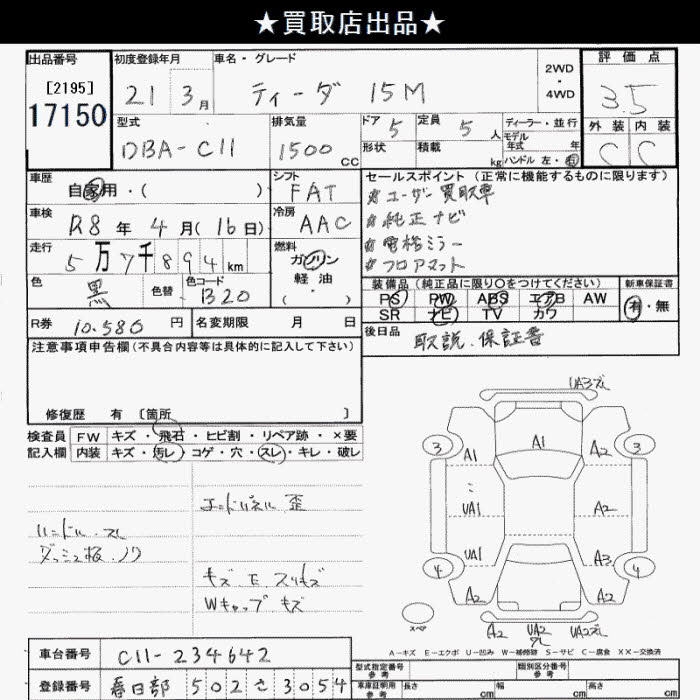 ★買取店出品★
出品番号
[2195]
17150
初度登録年月
21 3月
車名・グレード
ティーダ 15M
2WD
・
4WD
評価点
3.5
外装 内装
C C
型式
DBA-C11
排気量
1500 cc
ドア 5
形状
定員 5 人
積載 kg
ディーラー・並行
モデル
年式 年
ハンドル 左・右
車歴
自家用・( )
シフト
FAT
車検
R8 年 4 月 (16 日)
冷房
AAC
走行
5万7千894 km
燃料
ガソリン
軽油
( ・ )
色
黒
色替
色コード
B20
R券 10.580 円
名変期限 月 日
セールスポイント (正常に機能するものに限ります)
#ユーザー買取車
#純正ナビ
#電格ミラー
#フロアマット
装備品 (純正品に限り○をつけてください)
PS PW ABS エアB AW
SR ナビ TV カワ
新車保証書
有・無
後日品
取説、保証書
注意事項申告欄(不具合内容等は具体的に記入して下さい)
修復歴 有 [箇所 ]
検査員 FW キズ・飛石・ヒビ割・リペア跡・×要
記入欄 内装 キズ・汚レ・コゲ・穴・スレ・キレ・破レ
エンドパネル 歪
ハンドル スレ
ダッシュ板 ノリ
キズ、E、スリキズ
Wキャップ キズ
UA3ズレ
3 3
A1 A1 A2
UA1 A2
UA1 A3
4 4
A2 A2
スペア
A2 UA2 UA2ズレ
ズレ
A-キズ E-エクボ U-凹み W-補修跡 S-サビ C-腐食 XX-交換済
車台番号 C11-234642
登録番号 春日部 502 さ 3054
型式指定番号
参考
類別区分番号
参考
車庫証明用
参考
長さ cm 幅 cm 高さ cm